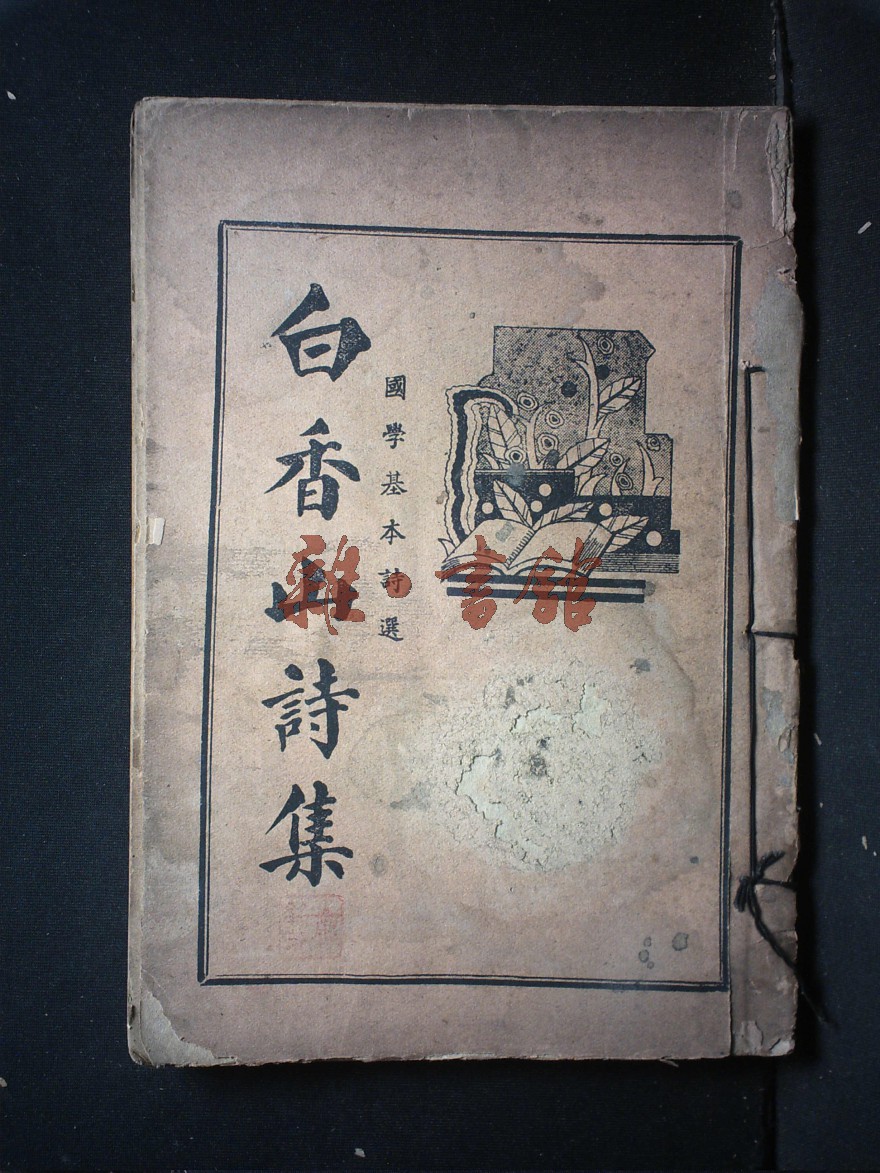 國學基本詩選
白香山詩集
雜·書館